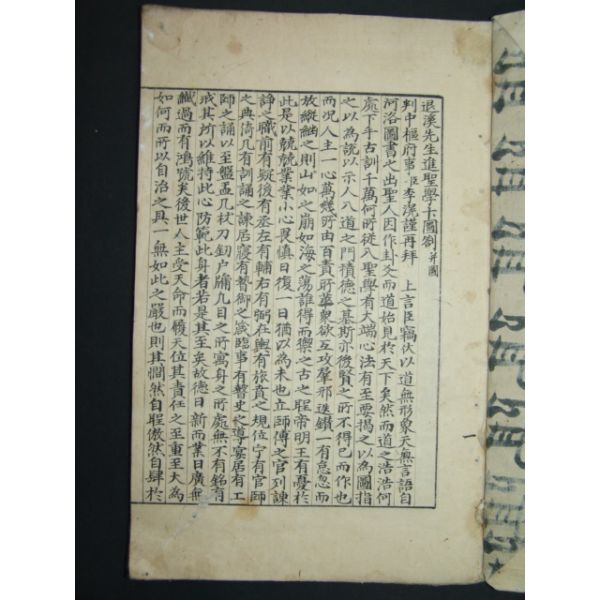 退溪先生進聖學十圖劄 并圖
判中樞府事臣李滉謹再拜 上言臣竊伏以道無形象天無言語自
河洛圖書之出聖人因作卦爻而道始見於天下矣然而道之浩浩何
處下手古訓千萬何所從入聖學有大端心法有至要揭之以爲圖指
之以爲說以示人入道之門積德之基斯亦後賢之所不得已而作也
而况人主一心萬幾所由百責所萃衆欲互攻羣邪迭鑽一有怠忽而
放縱繼之則山如之崩如海之蕩誰得而禦之古之聖帝明王有憂於
此是以兢兢業業小心畏愼日復一日猶以爲未也立師傅之官列諫
諍之職前有疑後有丞左有輔右有弼在輿有旅賁之規位宁有官師
之典倚几有訓誦之諫居寢有暬御之箴臨事有瞽史之導宴居有工
師之誦以至盤盂几杖刀釖户牖凡目之所寓身之所處無不有銘有
戒其所以維持此心防範此身者若是其至矣故德日新而業日廣無
纎過而有鴻號矣後世人主受天命而履天位其責任之至重至大爲
如何而所以自治之具一無如此之嚴也則其憪然自聖傲然自肆於
一